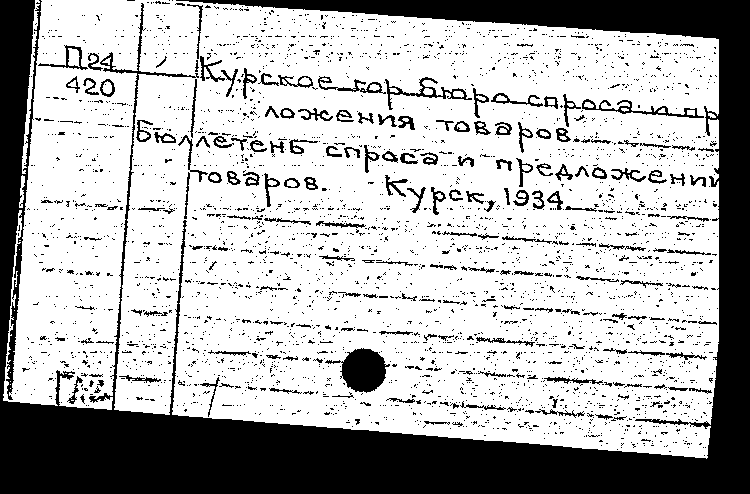 П24
420
Курское гор. бюро спроса и пр
ложения товаров.
Бюллетень спроса и предложений
товаров. Курск, 1934.